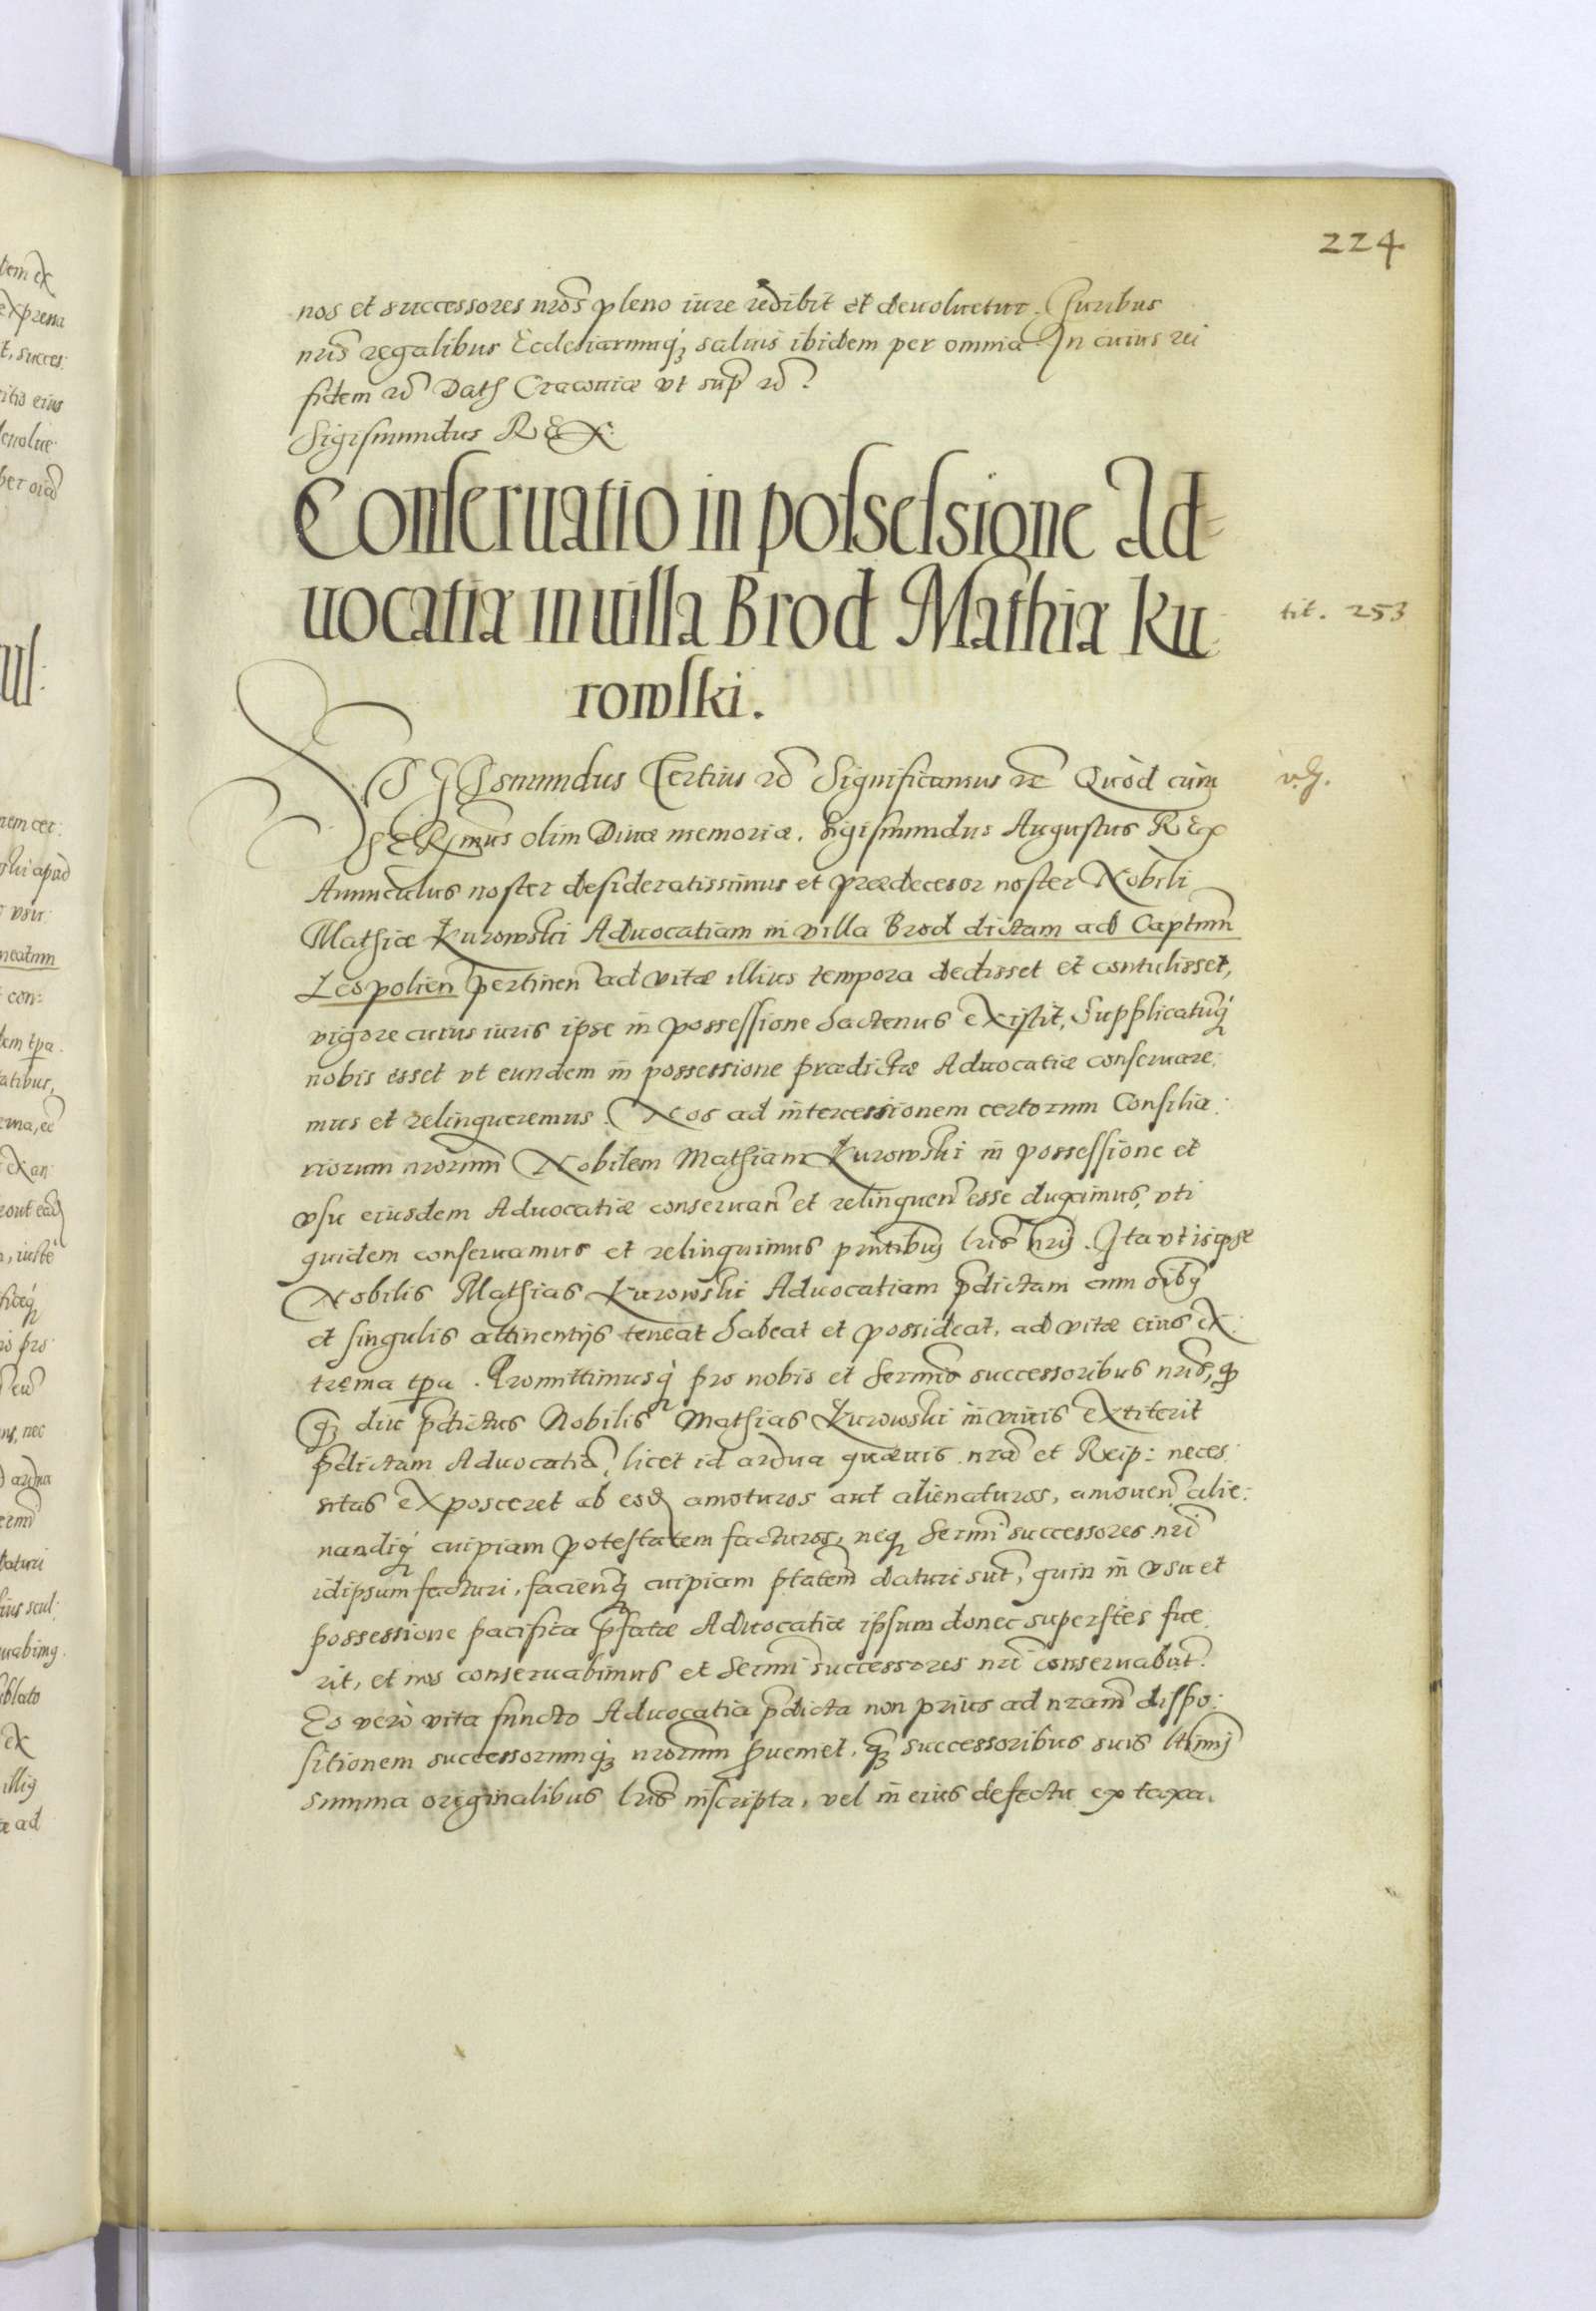 224
nos et successores nros pleno iure redibit et devoluetur. Iuribus
nris regalibus Ecclesiarumq́ȝ saluis ibidem per omnia. In cuius rei
fidem etc Datȝ Cracouiæ vt supr etc.
Sigismundus REX.
Conseruatio in possessione Ad=
uocatiæ in uilla Brod Mathiæ Ku
tit. 253
rowski.
SIGIsmundus Tertius etc Significamus etc Quòd cùm
SERmus olim Diuæ memoriæ. Sigismundus Augustus REX
Auunculus noster desideratissimus et prædecesor noster Nobili
Mathiæ Kurowski Aduocatiam in villa Brod dictam ad Captnm
Leopolien pertinen ad vitæ illius tempora dedisset et contulisset,
vigore cuius iuris ipse in possessione hactenus existit, Supplicatuq́
nobis esset vt eundem in possessione prædictæ Aduocatiæ conseruare:
mus et relinqueremus. Nos ad intercessionem certorum Consilia:
riorum nrorum Nobilem Mathiam Kurowski in possessione et
vsu eiusdem Aduocatiæ conseruan et relinquen esse duximus, vti
quidem conseruamus et relinquimus pntibus lris nris. Ita vt is ipse
Nobilis Mathias Kurowski Aduocatiam pdictam cum oibus
et singulis attinentijs teneat habeat et possideat, ad vitæ eius ex:
trema tpa. Promittimusq́ pro nobis et Sermis successoribus nris, q
qȝ diu pdictus Nobilis Mathias Kurowski in viuis extiterit
pdictam Aduocatia, licet id ardua quæuis nra et Reip: neces:
sitas exposceret ab eod amoturos aut alienaturos, amouen alie:
nandiq́ cuipiam potestatem facturos, neq Sermi successores nri
idipsum facturi, facienq́ cuipiam ptatem daturi sut, quin in vsu et
possessione pacifica pfatæ Aduocatiæ ipsum donec superstes fue:
rit, et nos conseruabimus et Sermi successores nri conseruabut.
Eo verò vita functo Aduocatia pdicta non prius ad nram dispo:
sitionem successorumq́ȝ nrorum pueniet, qȝ successoribus suis ltimis
summa originalibus lris inscripta, vel in eius defectu ex taxa.